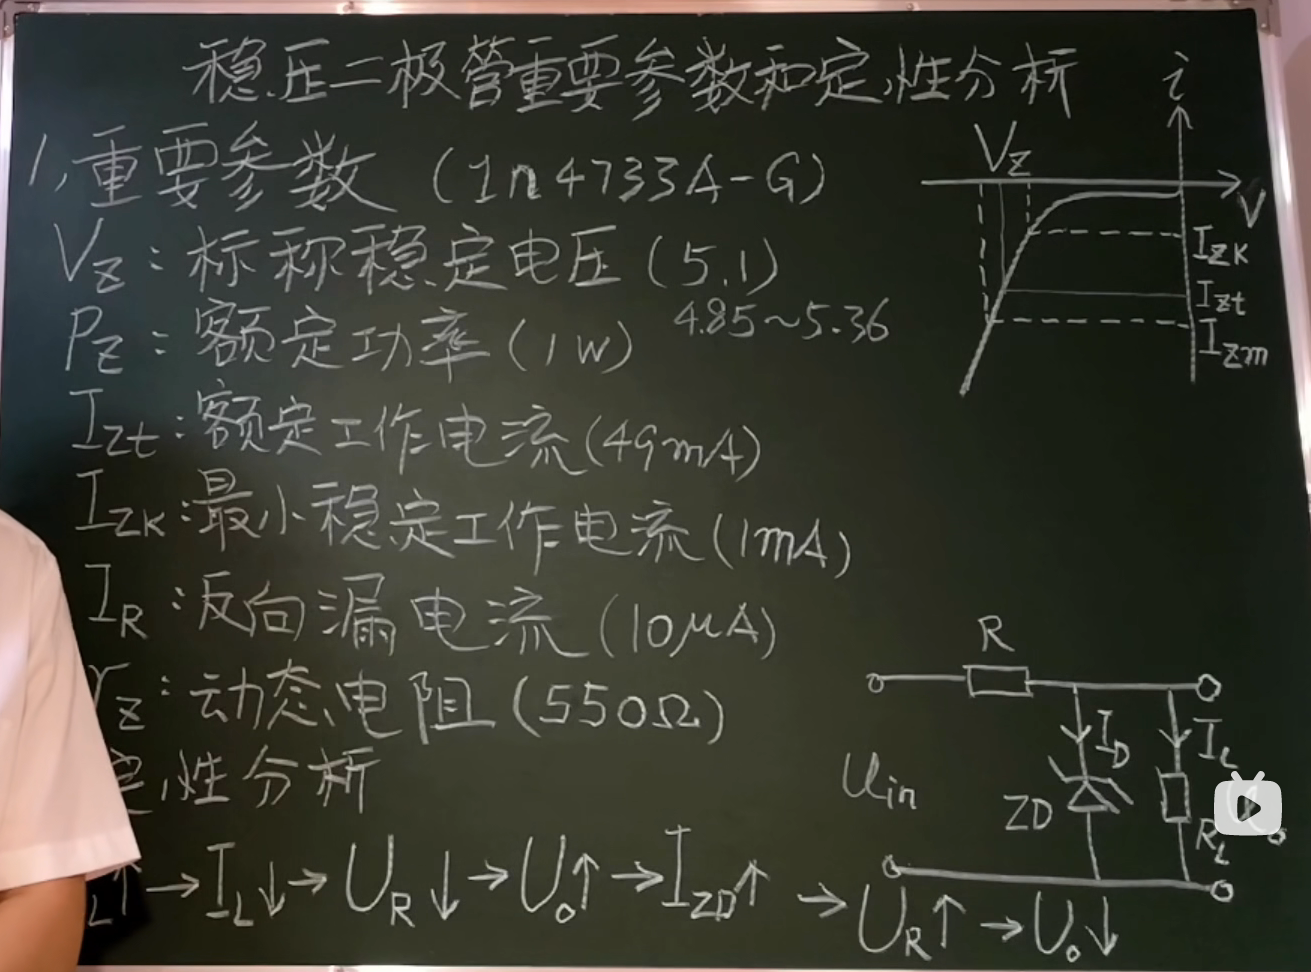 稳压二极管重要参数和定性分析
1,重要参数 (1n4733A-G)
VZ:标称稳定电压(5.1)
4.85~5.36
PZ:额定功率(1W)
IZt:额定工作电流(49mA)
IZK:最小稳定工作电流(1mA)
IR:反向漏电流(10μA)
rZ:动态电阻(550Ω)
定性分析
L↑→IL↓→UR↓→Uo↑→IZD↑→UR↑→Uo↓
i
VZ
V
IZK
IZt
IZm
R
ID
IL
Uin
ZD
RL